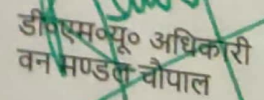 डी०एम०यू० अधिकारी
वन मण्डल चौपाल